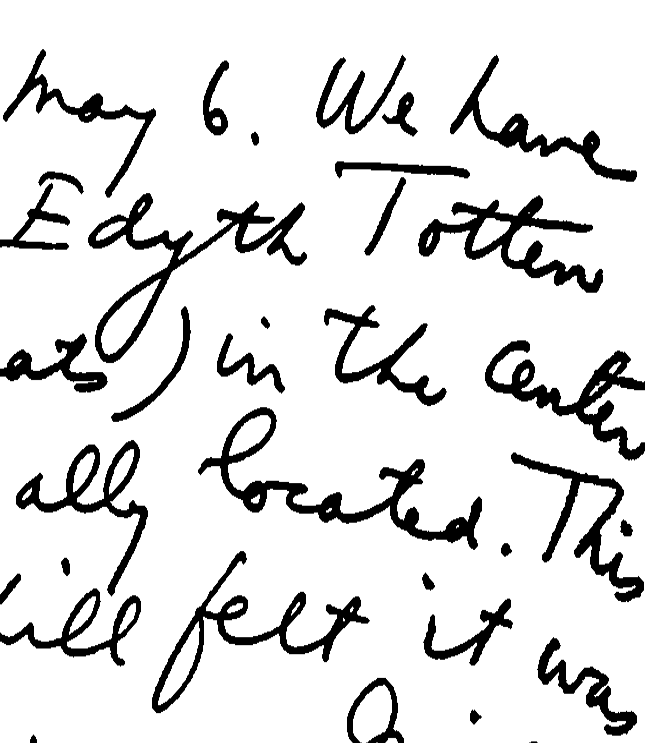 May 6. We have
Edyth Totten
ats) in the center
ally located. This
ill felt it was